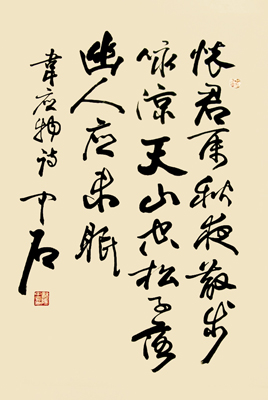 怀君属秋夜散步
咏凉天山空松子落
幽人应未眠
韋应物诗 中石